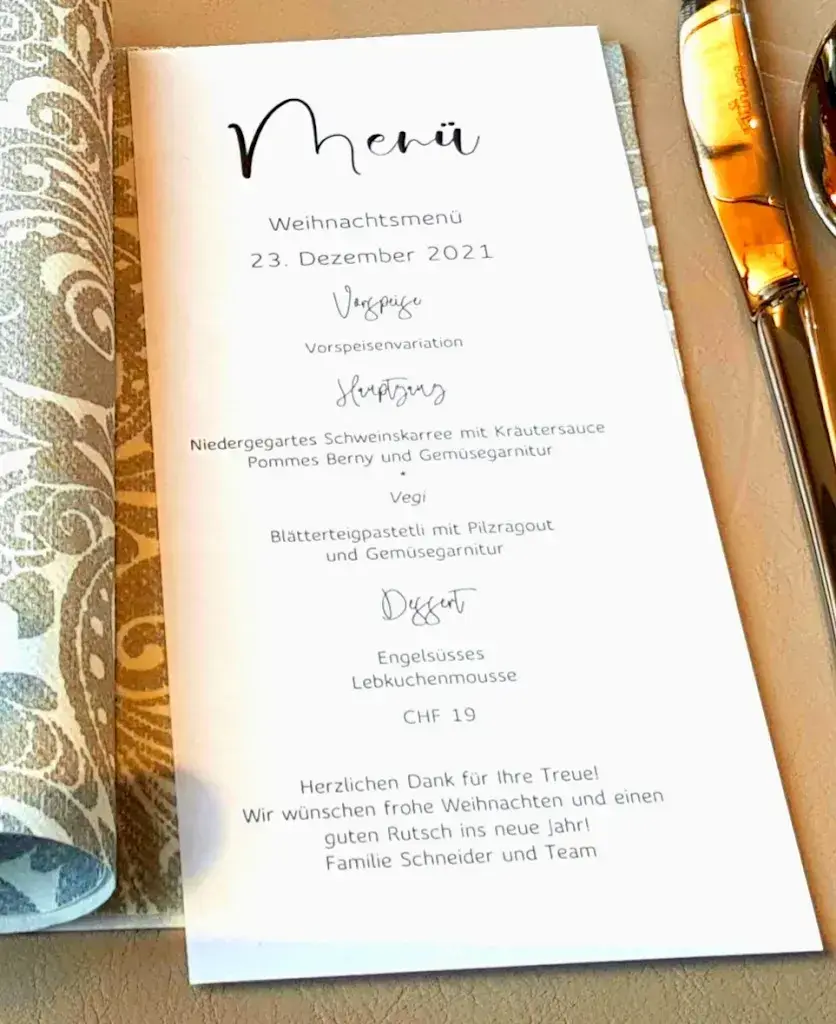 Menü
Weihnachtsmenü
23. Dezember 2021
Vorspeise
Vorspeisenvariation
Hauptgang
Niedergegartes Schweinskarree mit Kräutersauce
Pommes Berny und Gemüsegarnitur
*
Vegi
Blätterteigpastetli mit Pilzragout
und Gemüsegarnitur
Dessert
Engelsüsses
Lebkuchenmousse
CHF 19
Herzlichen Dank für Ihre Treue!
Wir wünschen frohe Weihnachten und einen
guten Rutsch ins neue Jahr!
Familie Schneider und Team